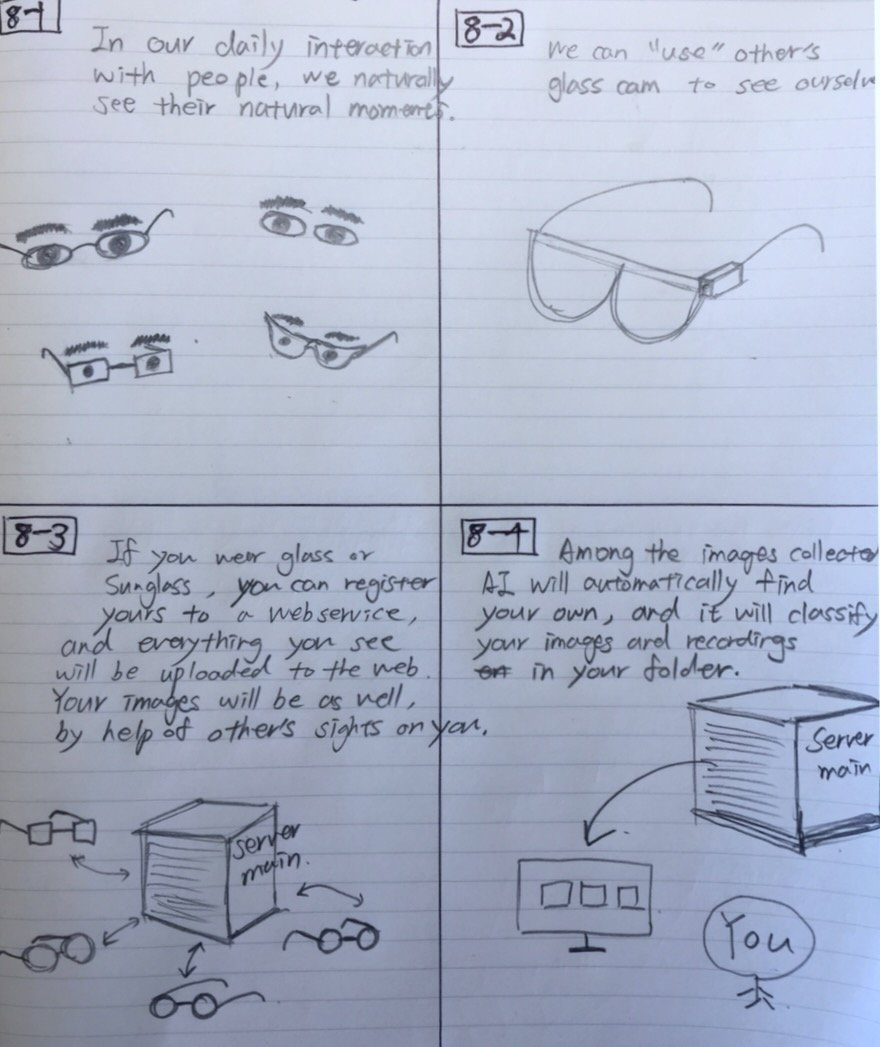 8-1
In our daily interaction
with people, we naturally
see their natural moments.
8-2
We can "use" other's
glass cam to see ourselve
8-3
If you wear glass or
Sunglass, you can register
yours to a webservice,
and everything you see
will be uploaded to the web.
Your images will be as well,
by help of other's sights on you.
server
main.
8-4
Among the images collected
AI will automatically find
your own, and it will classify
your images and recordings
in your folder.
Server
main
You